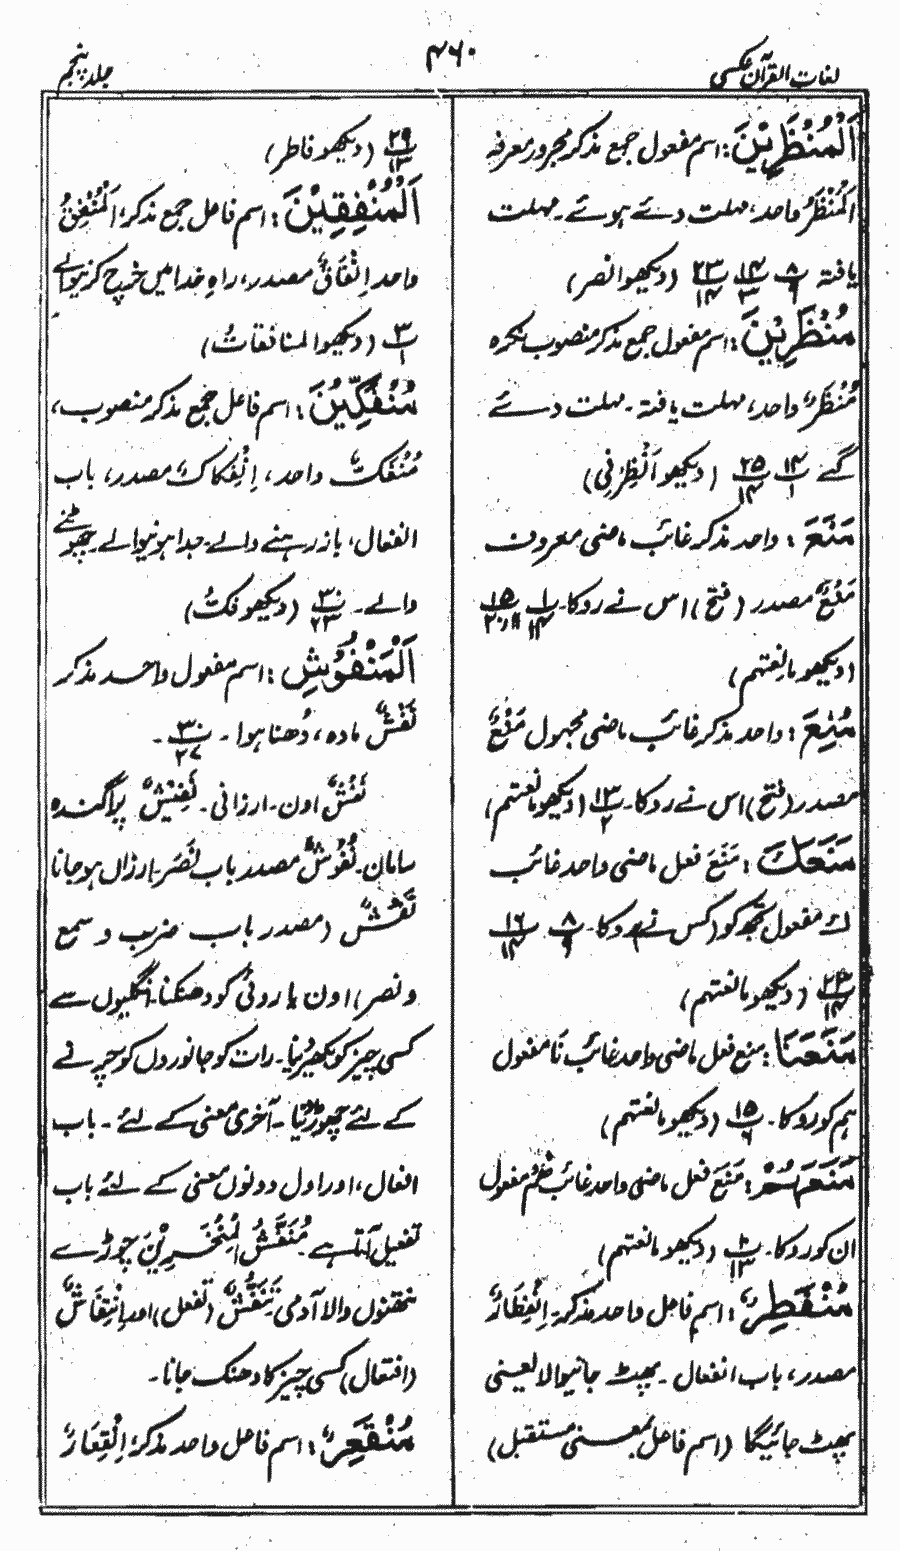 لغات القرآن عکسی
۴۶۰
جلد پنجم
اَلْمُنْظَرِیْنَ: اسم مفعول جمع مذکر مجرور معرفہ
اَلْمُنْظَرُ واحد، مہلت دئے ہوئے۔ مہلت
یافتہ ۸/۹ ۱۴/۳ ۲۳/۱۴ (دیکھو انصر)
مُنْظَرِیْنَ: اسم مفعول جمع مذکر منصوب نکرہ
مُنْظَرٌ واحد، مہلت یافتہ۔ مہلت دئے
گئے ۱۴/۱ ۲۵/۱۴ (دیکھو اَنْظِرْنِی)
مَنَعَ: واحد مذکر غائب ماضی معروف
مَنْعٌ مصدر (فتح) اس نے روکا۔ ۱/۱۴ ۱۵/۲۰،۱۱
(دیکھو مانعتہم)
مُنِعَ: واحد مذکر غائب ماضی مجہول مَنْعٌ
مصدر (فتح) اس نے روکا۔ ۱۳/۲ (دیکھو مانعتہم)
مَنَعَكَ: مَنَعَ فعل ماضی واحد غائب
ك مفعول تجھ کو (کس نے) روکا۔ ۸/۹ ۱۶/۱۴
۲۳/۱۴ (دیکھو مانعتہم)
مَنَعَنَا: منع فعل ماضی واحد غائب نَا مفعول
ہم کو روکا۔ ۱۵/۶ (دیکھو مانعتہم)
مَنَعَهُمْ: مَنَعَ فعل ماضی واحد غائب ھُمْ مفعول
ان کو روکا۔ ۱۰/۱۳ (دیکھو مانعتہم)
مُنْفَطِرٌ: اسم فاعل واحد مذکر۔ اِنْفِطَارٌ
مصدر، باب انفعال۔ پھٹ جانیوالا یعنی
پھٹ جائیگا (اسم فاعل بمعنی مستقبل)
۲۹/۱۳ (دیکھو فاطر)
اَلْمُنْفِقِیْنَ: اسم فاعل جمع مذکر، اَلْمُنْفِقُ
واحد اِنْفَاقٌ مصدر، راہِ خدا میں خرچ کرنیوالے
۳/۱ (دیکھو المنافقات)
مُنْفَكِّیْنَ: اسم فاعل جمع مذکر منصوب،
مُنْفَكٌّ واحد، اِنْفِکَاكٌ مصدر، باب
انفعال، باز رہنے والے۔ جدا ہونیوالے۔ چھوٹنے
والے۔ ۳۰/۲۳ (دیکھو فکتُ)
اَلْمَنْفُوْشِ: اسم مفعول واحد مذکر
نَفْشٌ مادہ، دُھنا ہوا۔ ۳۰/۲۷۔
نَفْشٌ اون۔ ارزانی۔ نَفِیْشٌ پراگندہ
سامان۔ نُفُوْشٌ مصدر باب نَصَرَ۔ ارزاں ہو جانا
نَفْشٌ (مصدر باب ضرب و سمع
و نصر) اون یا روئی کو دھنکنا۔ انگلیوں سے
کسی چیز کو بکھیر دینا۔ رات کو جانوروں کو چرنے
کے لئے چھوڑ دینا۔ آخری معنی کے لئے۔ باب
افعال، اور اول دونوں معنی کے لئے باب
تفعیل آتا ہے۔ مُنَفَّشُ الْمُنْخَرِیْنَ چوڑے
نتھنوں والا آدمی۔ تَنَفُّشٌ (تفعل) اور اِنْتِفَاشٌ
(افتعال) کسی چیز کا دھنک جانا۔
مُنْقَعِرٌ: اسم فاعل واحد مذکر، اِنْقِعَارٌ